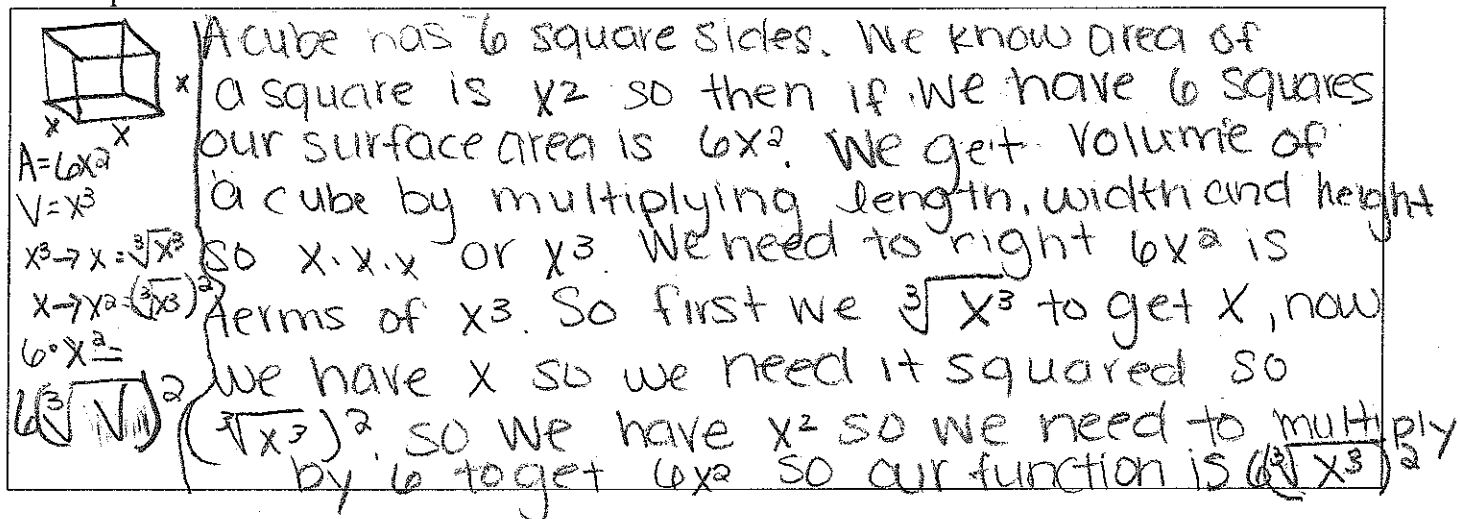 x
x
x
A=6x2
V=x³
x³→x=∛x³
x→x²=(∛x³)²
6·x²=
6(∛V)²
A cube has 6 square sides. We know area of
a square is x² so then if we have 6 squares
our surface area is 6x². We get volume of
a cube by multiplying length, width and height
so x.x.x or x³. We need to right 6x² is
terms of x³. So first we ∛x³ to get x, now
we have x so we need it squared so
(∛x³)². so we have x² so we need to multiply
by 6 to get 6x² so our function is 6(∛x³)²